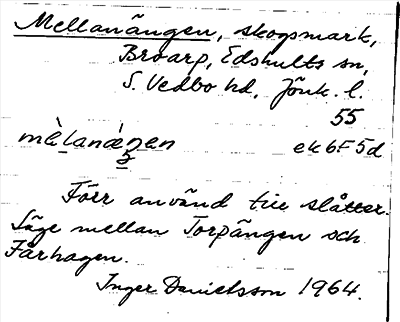 Mellanängen, skogsmark,
Broarp, Edshults sn,
S. Vedbo hd, Jönk. l.
55
mèlanáŋen ek 6F5d
Förr använd till slåtter.
Läge mellan Torpängen och
Fårhagen.
Inger Danielsson 1964.